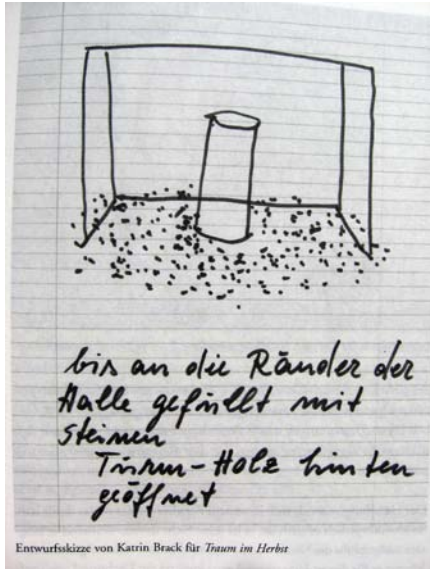 bis an die Ränder der
Halle gefüllt mit
Steinen
Turm-Holz hinten
geöffnet
Entwurfsskizze von Katrin Brack für Traum im Herbst